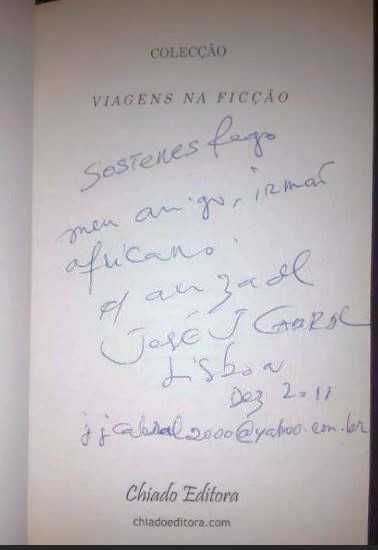 COLECÇÃO
VIAGENS NA FICÇÃO
Sostenes Rego
meu amigo, irmão
africano.
c/ amizade
José J Cabral
Lisboa
Dez 2011
jjcabral2000@yahoo.com.br
Chiado Editora
chiadoeditora.com